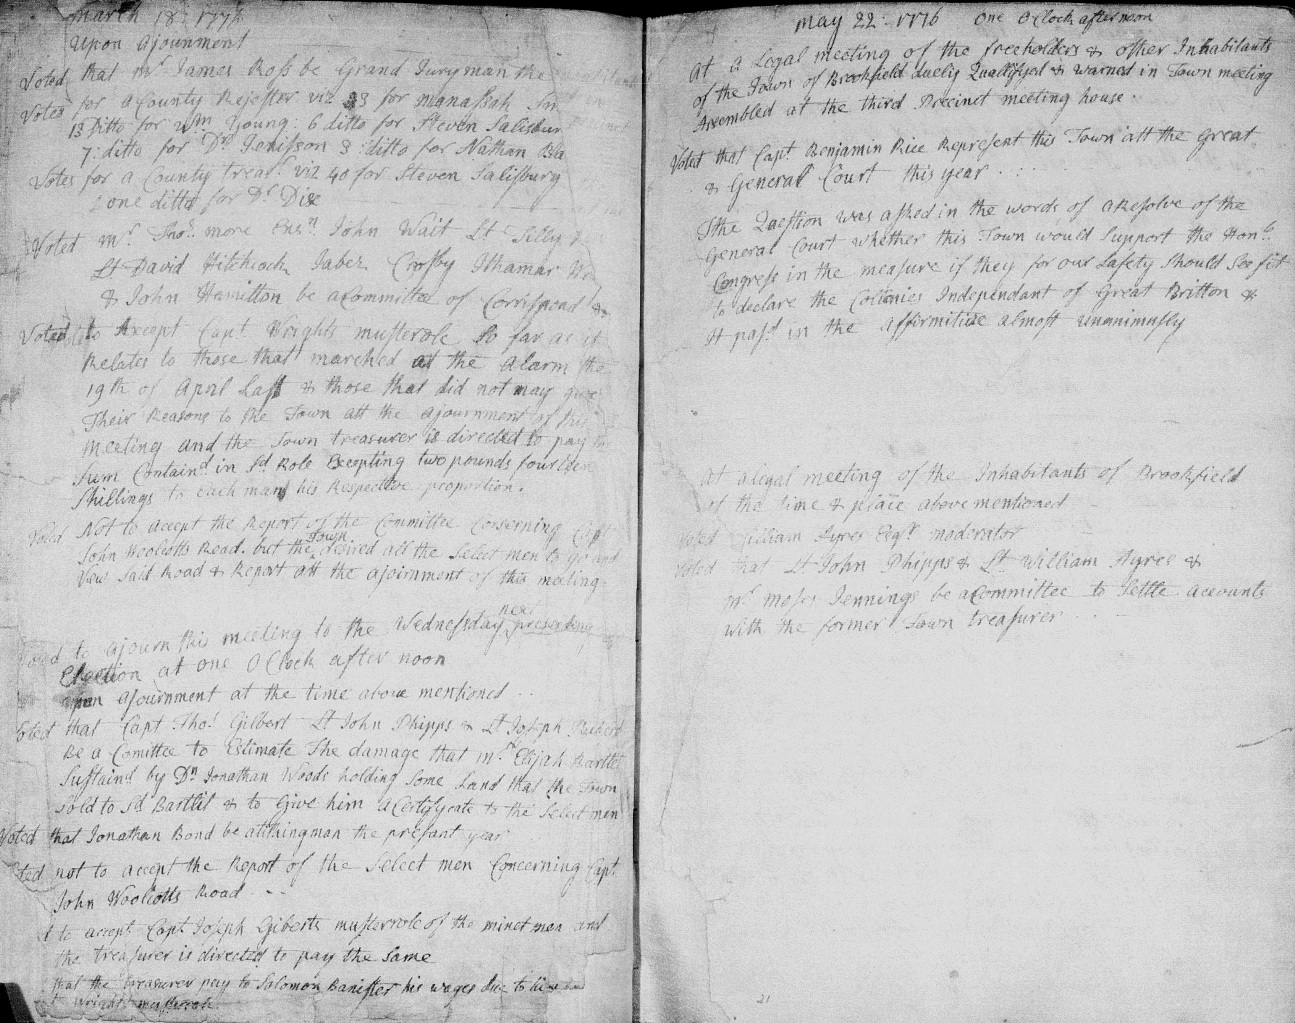 March 18: 1776
Upon Ajournment
Voted that mr. James Ross be Grand Juryman the
Voted for a County Rejester viz 33 for manassah
13 Ditto for Wm Young: 6 ditto for Steven Salisbur
7: ditto for Dn 3: ditto for Nathan
Voted for a County treasr. viz 40 for Steven Salisbury
one ditto for Dr. Dix
Voted mr. Thos. more Ensn. John Wait Lt
Lt David Hitchcock Jabez Crosby Ithamar
& John Hamilton be a Committee of Corrispond
Voted to Axcept Capt Wrights musterole So far as it
Relates to those that marched at the Alarm the
19th of April Last & those that did not may give
Their Reasons to the Town att the ajournment of this
meeting and the Town treasurer is directed to pay
Sum Containd. in sd. Role Excepting two pounds fourteen
Shillings to each man his Respective proportion.
Voted Not to accept the Report of the Committee Conserning Capt
John Woolcotts Road. but the Town desired all the Select men to go and
View Said Road & Report att the ajoirnment of this meeting
Voted to ajourn this meeting to the Wednesday next preseeding
Election at one O Clock after noon
upon ajournment at the time above mentioned ..
Voted that Capt Thos. Gilbert Lt John Phipps & Lt Joseph
Be a Comittee to Estimate The damage that mr. Elijah Bartlet
Sustaind by Dn Jonathan Woods holding Some Land that the Town
Sold to Sd Bartlit & to Give him a Certifycate to the Select men
Voted that Jonathan Bond be atithingman the presant year
Voted not to accept the Report of the Select men Concerning Capt.
John Woolcotts Road
to accept Capt Joseph Giberts musterrole of the minet men and
the treasurer is directed to pay the Same
that the treasurer pay to Salomon Banister his wages due to him
Wrights musterrole
may 22: 1776 One O Clock afternoon
At a Legal meeting of the freeholders & other Inhabitants
of the Town of Brookfield duely Quallifyed & warned in Town meeting
Assembled at the third Precinct meeting house.
Voted that Capt. Benjamin Rice Represent this Town att the Great
& General Court this year
The Question was asked in the words of a Resolve of the
General Court whether this Town would Support the Honle.
Congress in the measure if they for our Safety Should See fit
to declare the Collonies Independant of Great Britton &
It pasd. in the affirmitive almost unanimusly
At a legal meeting of the Inhabitants of Brookfield
at the time & place above mentioned
Voted William Ayres Esqr. moderator
Voted that Lt John Phipps & Lt. William Ayres &
mr. Moses Jennings be a Committee to Settle accounts
with the former Town treasurer
21